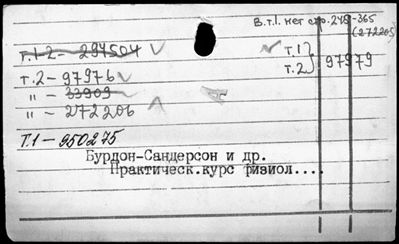 В.т.1. нет стр. 248-365
(272205)
т.1-2 - 294504
т.1
т.2 97979
т.2 - 97976
" - 33909
" - 272206
Т.1 - 950275
Бурдон-Сандерсон и др.
Практическ.курс физиол....